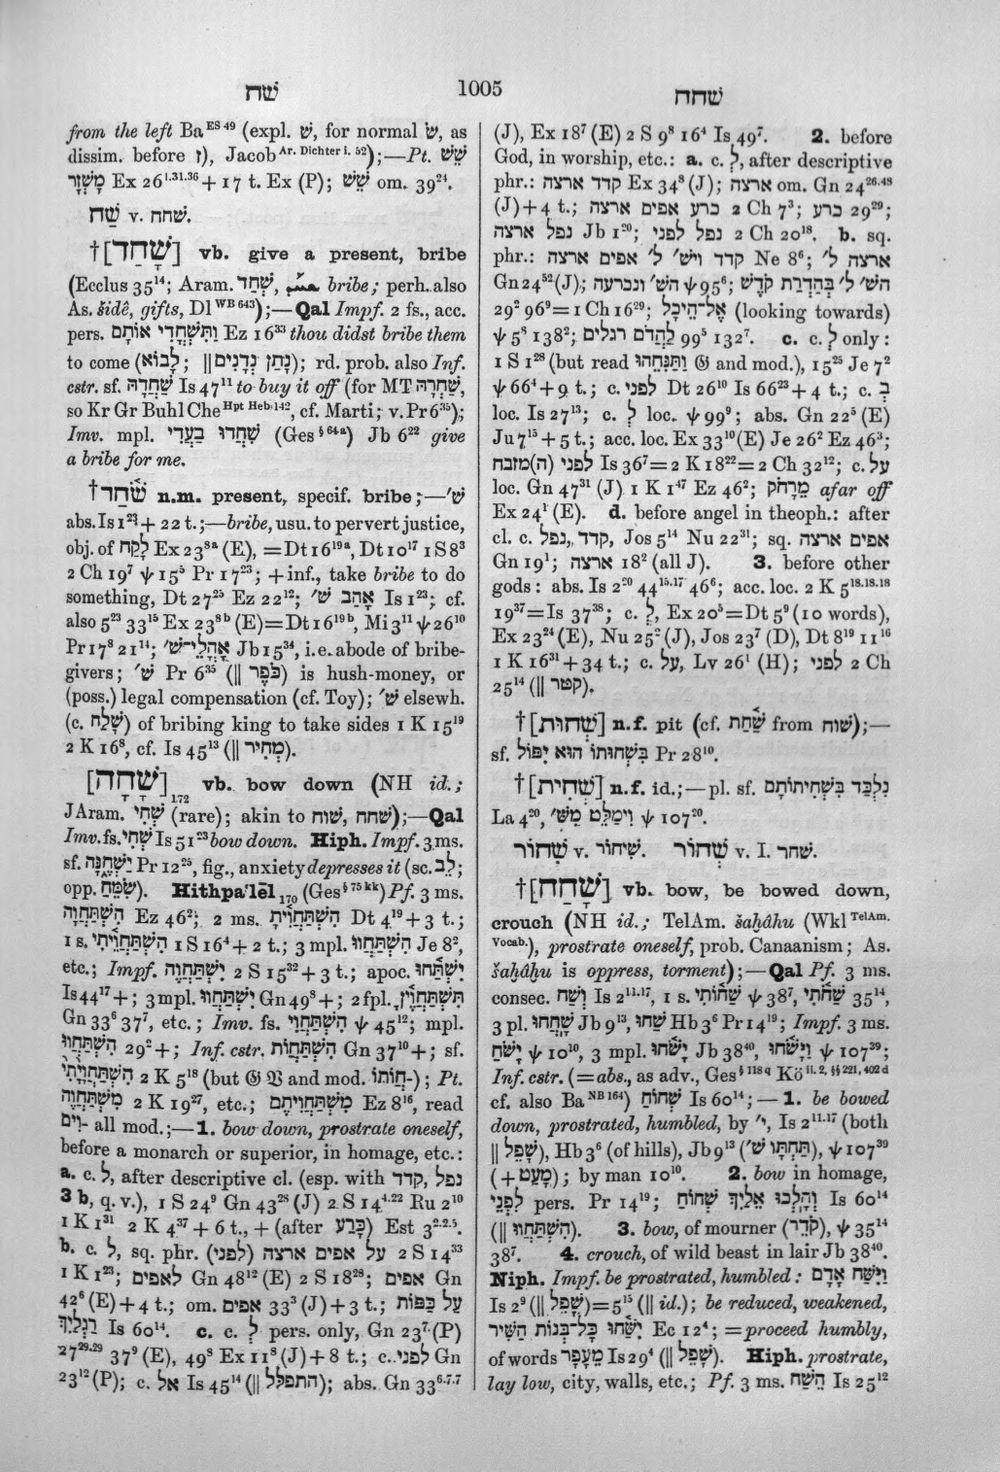 שח
1005
שחח
from the left Ba ES 49 (expl. שׁ, for normal שׂ, as
dissim. before ז), Jacob Ar. Dichter i. 52);—Pt. שֵׁשׁ
מָשְׁזָר Ex 26 1.31.36 + 17 t. Ex (P); שֵׁשׁ om. 39 24.
שַׁח v. שחח.
†[שָׁחַד] vb. give a present, bribe
(Ecclus 35 14; Aram. שְׁחַד, bribe; perh. also
As. šidê, gifts, Dl WB 643);—Qal Impf. 2 fs., acc.
pers. וַתִּשְׁחֳדִי אוֹתָם Ez 16 33 thou didst bribe them
to come (לָבוֹא; ‖ נָתַן נְדָנִים); rd. prob. also Inf.
cstr. sf. שַׁחֲדָהּ Is 47 11 to buy it off (for MT שַׁחְרָהּ,
so Kr Gr Buhl Che Hpt Heb. 142, cf. Marti; v. Pr 6 35);
Imv. mpl. שִׁחֲדוּ בַעֲדִי (Ges § 64 a) Jb 6 22 give
a bribe for me.
†שֹׁחַד n.m. present, specif. bribe;—שׁ׳
abs. Is 1 23 + 22 t.;—bribe, usu. to pervert justice,
obj. of לָקַח Ex 23 8a (E), = Dt 16 19a, Dt 10 17 1 S 8 3
2 Ch 19 7 ψ 15 5 Pr 17 23; + inf., take bribe to do
something, Dt 27 25 Ez 22 12; אָהַב שׁ׳ Is 1 23; cf.
also 5 23 33 15 Ex 23 8b (E) = Dt 16 19b, Mi 3 11 ψ 26 10
Pr 17 8 21 14; אָהֳלֵי־שׁ׳ Jb 15 34, i.e. abode of bribe-
givers; שׁ׳ Pr 6 35 (‖ כֹּפֶר) is hush-money, or
(poss.) legal compensation (cf. Toy); שׁ׳ elsewh.
(c. שָׁלַח) of bribing king to take sides 1 K 15 19
2 K 16 8, cf. Is 45 13 (‖ מְחִיר).
[שָׁחָה] 172 vb. bow down (NH id.;
J Aram. שְׁחִי (rare); akin to שׁוח, שחח);—Qal
Imv. fs. שְׁחִי Is 51 23 bow down. Hiph. Impf. 3 ms.
sf. יַשְׁחֶנָּה Pr 12 25, fig., anxiety depresses it (sc. לֵב;
opp. שִׂמַּח). Hithpaʻlēl 170 (Ges § 75 kk) Pf. 3 ms.
הִשְׁתַּחֲוָה Ez 46 2; 2 ms. הִשְׁתַּחֲוִיתָ Dt 4 19 + 3 t.;
1 s. הִשְׁתַּחֲוֵיתִי 1 S 16 4 + 2 t.; 3 mpl. הִשְׁתַּחֲווּ Je 8 2,
etc.; Impf. יִשְׁתַּחֲוֶה 2 S 15 32 + 3 t.; apoc. יִשְׁתַּחוּ
Is 44 17 +; 3 mpl. יִשְׁתַּחֲווּ Gn 49 8 +; 2 fpl. תִּשְׁתַּחֲוֶיןָ
Gn 33 6 37 7, etc.; Imv. fs. הִשְׁתַּחֲוִי ψ 45 12; mpl.
הִשְׁתַּחֲווּ 29 2 +; Inf. cstr. הִשְׁתַּחֲוֹת Gn 37 10 +; sf.
הִשְׁתַּחֲוָיָתִי 2 K 5 18 (but 𝔊 𝔙 and mod. ־חֲוֹתִי); Pt.
מִשְׁתַּחֲוֶה 2 K 19 27, etc.; מִשְׁתַּחֲוִיתֶם Ez 8 16, read
־וִים all mod.;—1. bow down, prostrate oneself,
before a monarch or superior, in homage, etc.:
a. c. לְ, after descriptive cl. (esp. with קדד, נפל
3 b, q. v.), 1 S 24 9 Gn 43 28 (J) 2 S 14 4.22 Ru 2 10
1 K 1 31 2 K 4 37 + 6 t., + (after כָּרַע) Est 3 2.2.5.
b. c. לְ, sq. phr. (לפני) על אפים ארצה 2 S 14 33
1 K 1 23; לאפים Gn 48 12 (E) 2 S 18 28; אפים Gn
42 6 (E) + 4 t.; om. אפים 33 3 (J) + 3 t.; עַל כַּפּוֹת
רַגְלַיִךְ Is 60 14. c. c. לְ pers. only, Gn 23 7 (P)
27 29.29 37 9 (E), 49 8 Ex 11 8 (J) + 8 t.; c. לפני Gn
23 12 (P); c. אל Is 45 14 (‖ התפלל); abs. Gn 33 6.7.7
(J), Ex 18 7 (E) 2 S 9 8 16 4 Is 49 7. 2. before
God, in worship, etc.: a. c. לְ, after descriptive
phr.: קדד ארצה Ex 34 8 (J); ארצה om. Gn 24 26.48
(J) + 4 t.; כרע אפים ארצה 2 Ch 7 3; כרע 29 29;
נפל ארצה Jb 1 20; נפל לפני 2 Ch 20 18. b. sq.
phr.: קדד ויש׳ ל׳ אפים ארצה Ne 8 6; ארצה ל׳
Gn 24 52 (J); הש׳ ונכרעה ψ 95 6; הש׳ ל׳ בְּהַדְרַת קֹדֶשׁ
29 2 96 9 = 1 Ch 16 29; אֶל־הֵיכָל (looking towards)
ψ 5 8 138 2; לַהֲדֹם רגלים 99 5 132 7. c. c. לְ only:
1 S 1 28 (but read וַתַּנִּחֵהוּ 𝔊 and mod.), 15 25 Je 7 2
ψ 66 4 + 9 t.; c. לפני Dt 26 10 Is 66 23 + 4 t.; c. בְּ
loc. Is 27 13; c. לְ loc. ψ 99 9; abs. Gn 22 5 (E)
Ju 7 15 + 5 t.; acc. loc. Ex 33 10 (E) Je 26 2 Ez 46 3;
לפני (ה)מזבח Is 36 7 = 2 K 18 22 = 2 Ch 32 12; c. על
loc. Gn 47 31 (J) 1 K 1 47 Ez 46 2; מֵרָחֹק afar off
Ex 24 1 (E). d. before angel in theoph.: after
cl. c. קדד, נפל, Jos 5 14 Nu 22 31; sq. אפים ארצה
Gn 19 1; ארצה 18 2 (all J). 3. before other
gods: abs. Is 2 20 44 15.17 46 6; acc. loc. 2 K 5 18.18.18
19 37 = Is 37 38; c. לְ, Ex 20 5 = Dt 5 9 (10 words),
Ex 23 24 (E), Nu 25 2 (J), Jos 23 7 (D), Dt 8 19 11 16
1 K 16 31 + 34 t.; c. על, Lv 26 1 (H); לפני 2 Ch
25 14 (‖ קטר).
†[שְׁחוּת] n.f. pit (cf. שַׁחַת from שׁוח);—
sf. בִּשְׁחוּתוֹ הוּא יִפּוֹל Pr 28 10.
†[שְׁחִית] n.f. id.;—pl. sf. נִלְכַּד בִּשְׁחִיתוֹתָם
La 4 20, וִימַלֵּט מִשּׁ׳ ψ 107 20.
שְׁחוֹר v. שִׁיחוֹר. שְׁחוֹר v. I. שחר.
†[שָׁחַח] vb. bow, be bowed down,
crouch (NH id.; TelAm. šaḫâḫu (Wkl TelAm.
Vocab.), prostrate oneself, prob. Canaanism; As.
šaḫâḫu is oppress, torment);—Qal Pf. 3 ms.
consec. וְשַׁח Is 2 11.17, 1 s. שַׁחוֹתִי ψ 38 7, שַׁחֹתִי 35 14,
3 pl. שָׁחֲחוּ Jb 9 13, שַׁחוּ Hb 3 6 Pr 14 19; Impf. 3 ms.
יָשֹׁחַ ψ 10 10, 3 mpl. יָשֹׁחוּ Jb 38 40, וַיָּשֹׁחוּ ψ 107 39;
Inf. cstr. (= abs., as adv., Ges § 118 q Kö ii. 2, §§ 221, 402 d
cf. also Ba NB 164) שְׁחוֹחַ Is 60 14;—1. be bowed
down, prostrated, humbled, by י׳, Is 2 11.17 (both
‖ שָׁפֵל), Hb 3 6 (of hills), Jb 9 13 (תַּחְתָּו שׁ׳), ψ 107 39
(+ מָעַט); by man 10 10. 2. bow in homage,
לִפְנֵי pers. Pr 14 19; וְהָלְכוּ אֵלַיִךְ שְׁחוֹחַ Is 60 14
(‖ הִשְׁתַּחֲווּ). 3. bow, of mourner (קֹדֵר), ψ 35 14
38 7. 4. crouch, of wild beast in lair Jb 38 40.
Niph. Impf. be prostrated, humbled: וַיִּשַּׁח אָדָם
Is 2 9 (‖ שָׁפֵל) = 5 15 (‖ id.); be reduced, weakened,
יִשַּׁחוּ כָּל־בְּנוֹת הַשִּׁיר Ec 12 4; = proceed humbly,
of words מֵעָפָר Is 29 4 (‖ שָׁפֵל). Hiph. prostrate,
lay low, city, walls, etc.; Pf. 3 ms. הֵשַׁח Is 25 12